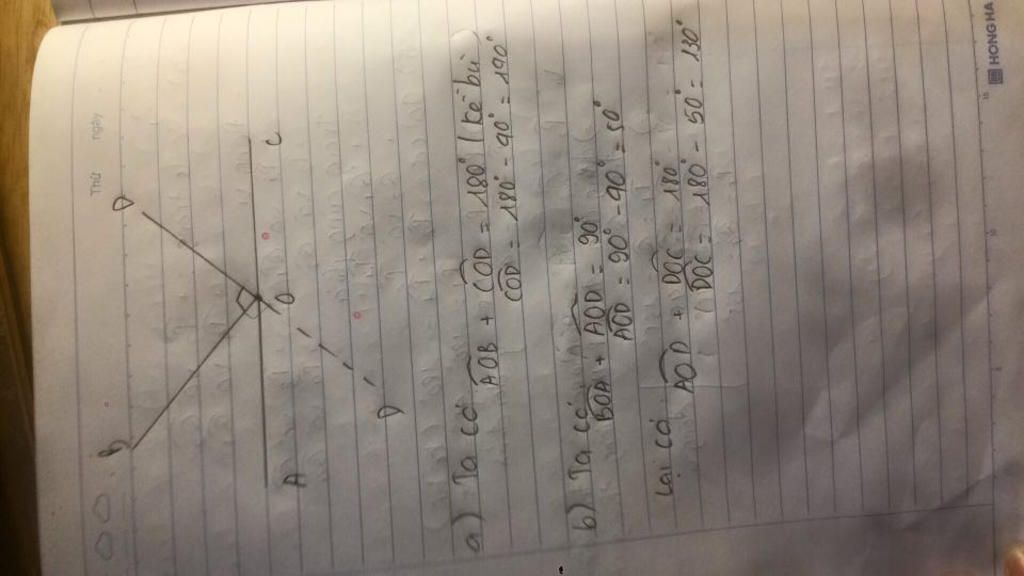 Thứ ngày
B
D
A
O
C
D
a) Ta có AOB + COD = 180° (kề bù)
COD = 180° - 40° = 140°
b) Ta có
BOA + AOD = 90°
AOD = 90° - 40° = 50°
Lại có
AOD + DOC = 180°
DOC = 180° - 50° = 130°
HONG HA